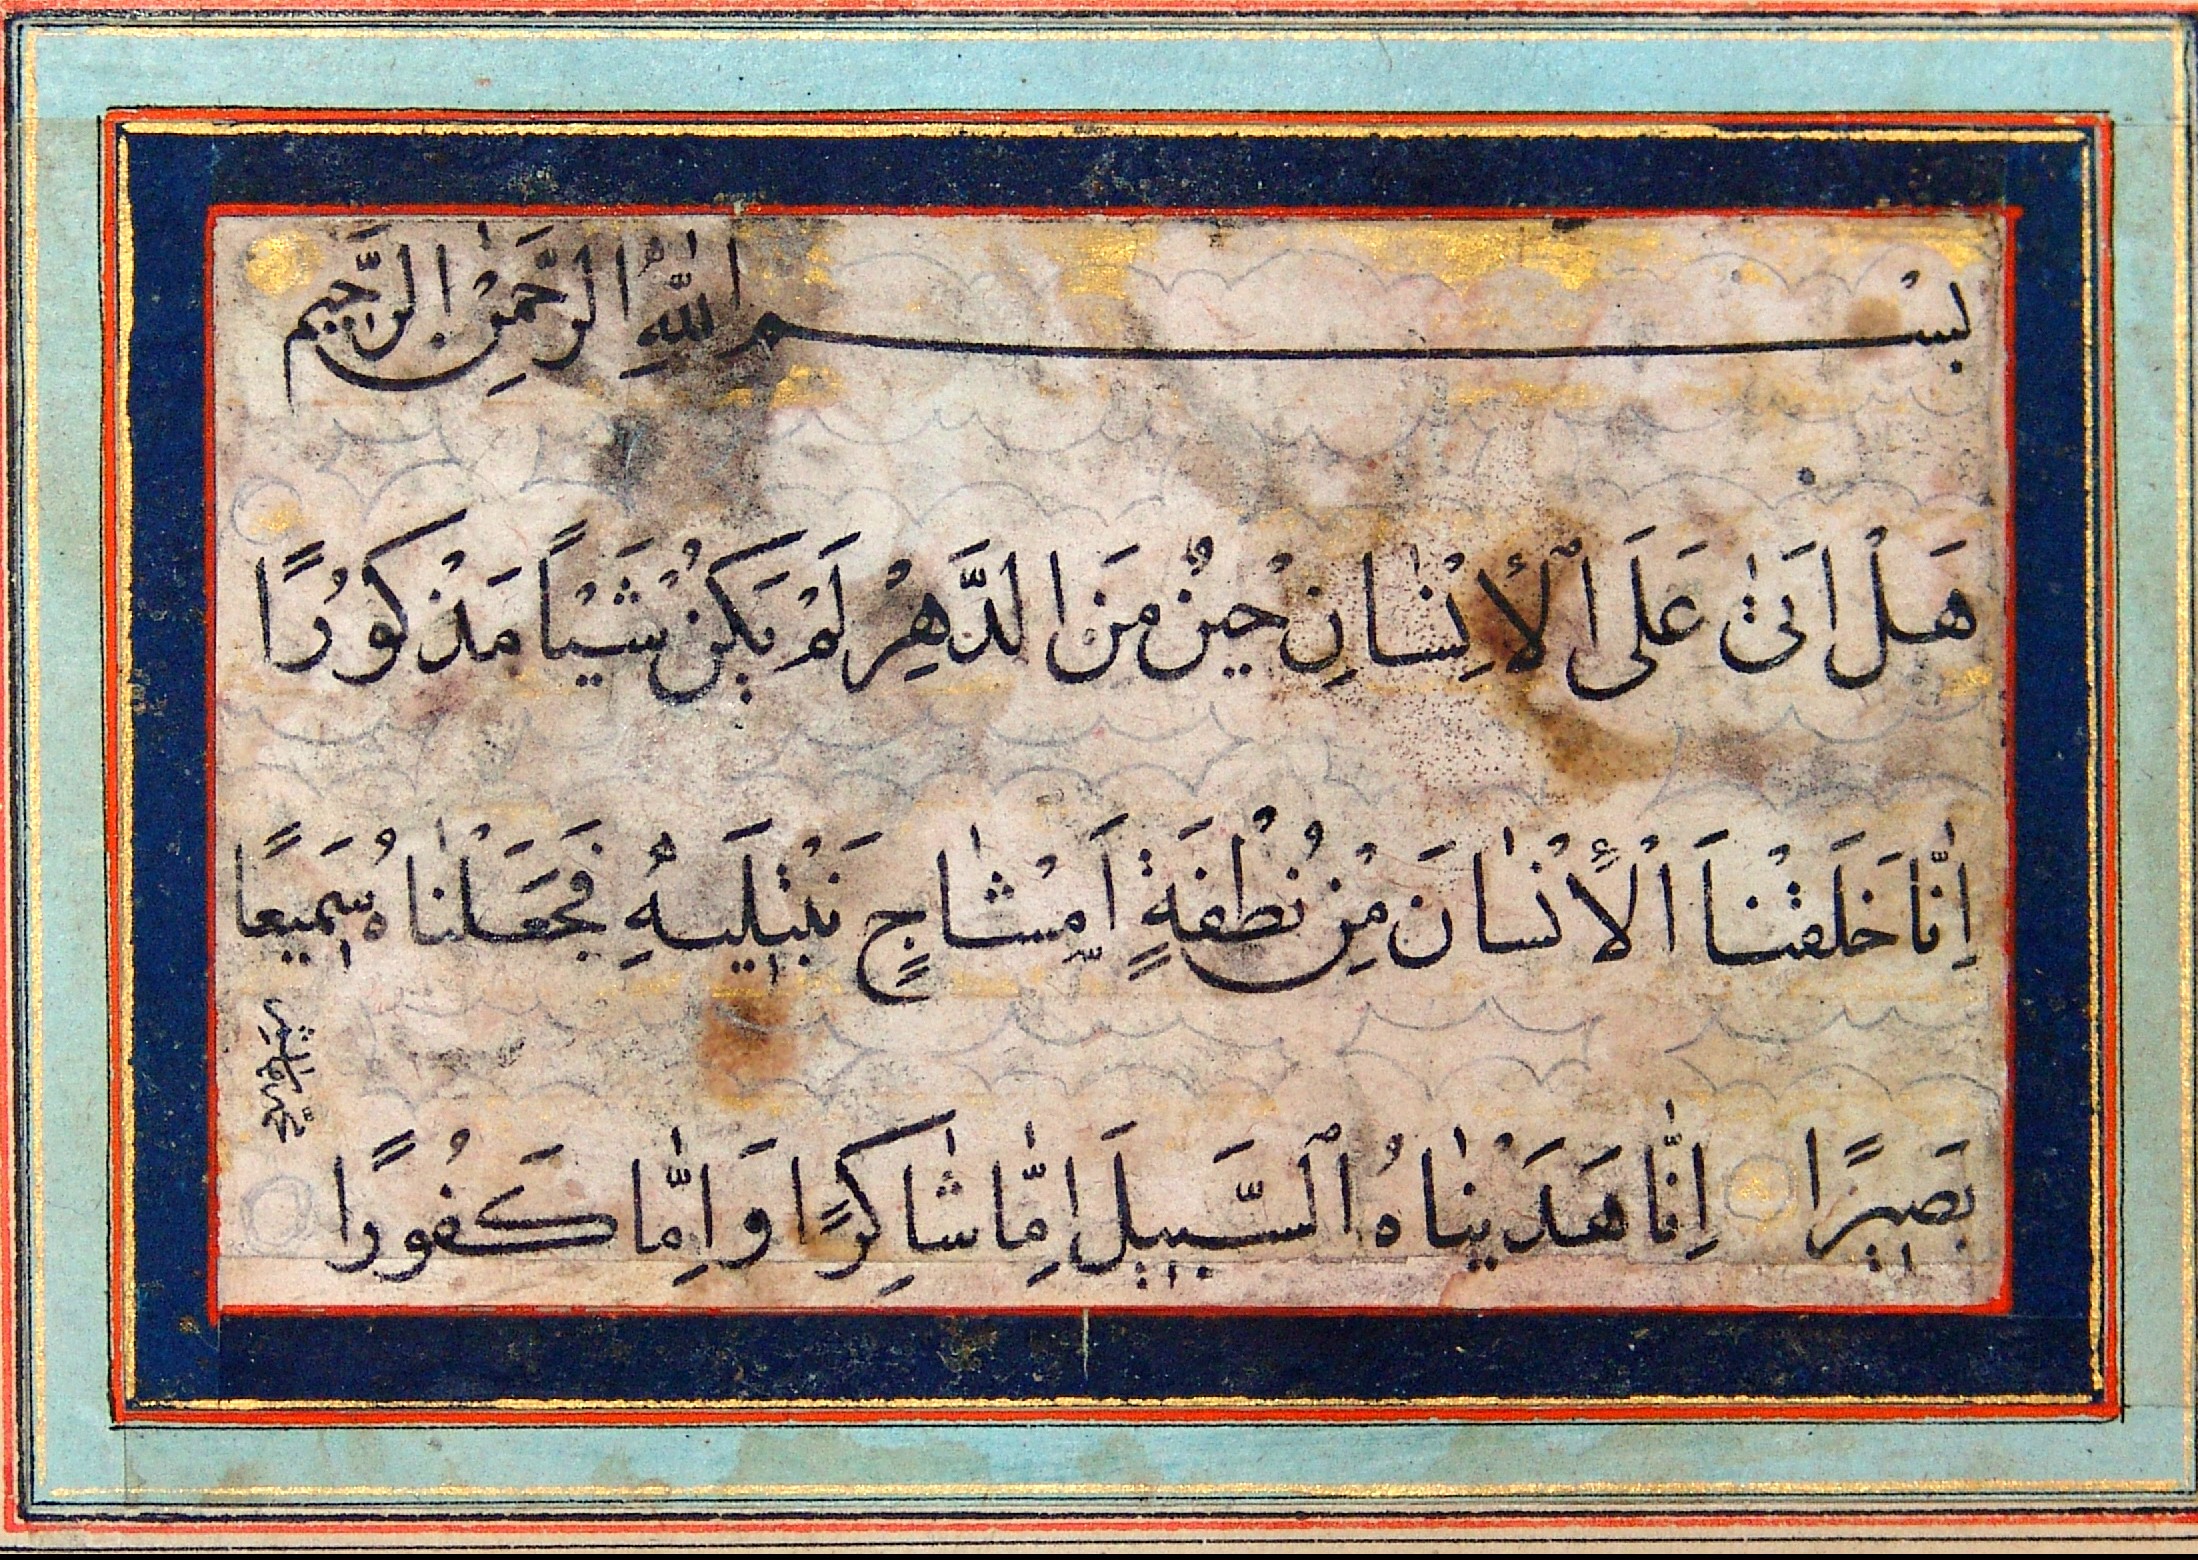 بِسْمِ اللّٰهِ الرَّحْمٰنِ الرَّحِيمِ
هَلْ اَتٰى عَلَى ٱلْأِنْسٰانِ حِينٌ مِنَ الدَّهْرِ لَمْ يَكُنْ شَيْأً مَذْكُورًا
اِنّٰا خَلَقْنَا اْلأِنْسٰانَ مِنْ نُطْفَةٍ اَمْشٰاجٍ نَبْتَلِيهِ فَجَعَلْنٰاهُ سَمِيعًا
بَصِيرًا اِنّٰا هَدَيْنٰاهُ ٱلسَّبِيلَ اِمّٰا شٰاكِرًا وَاِمّٰا كَفُورًا